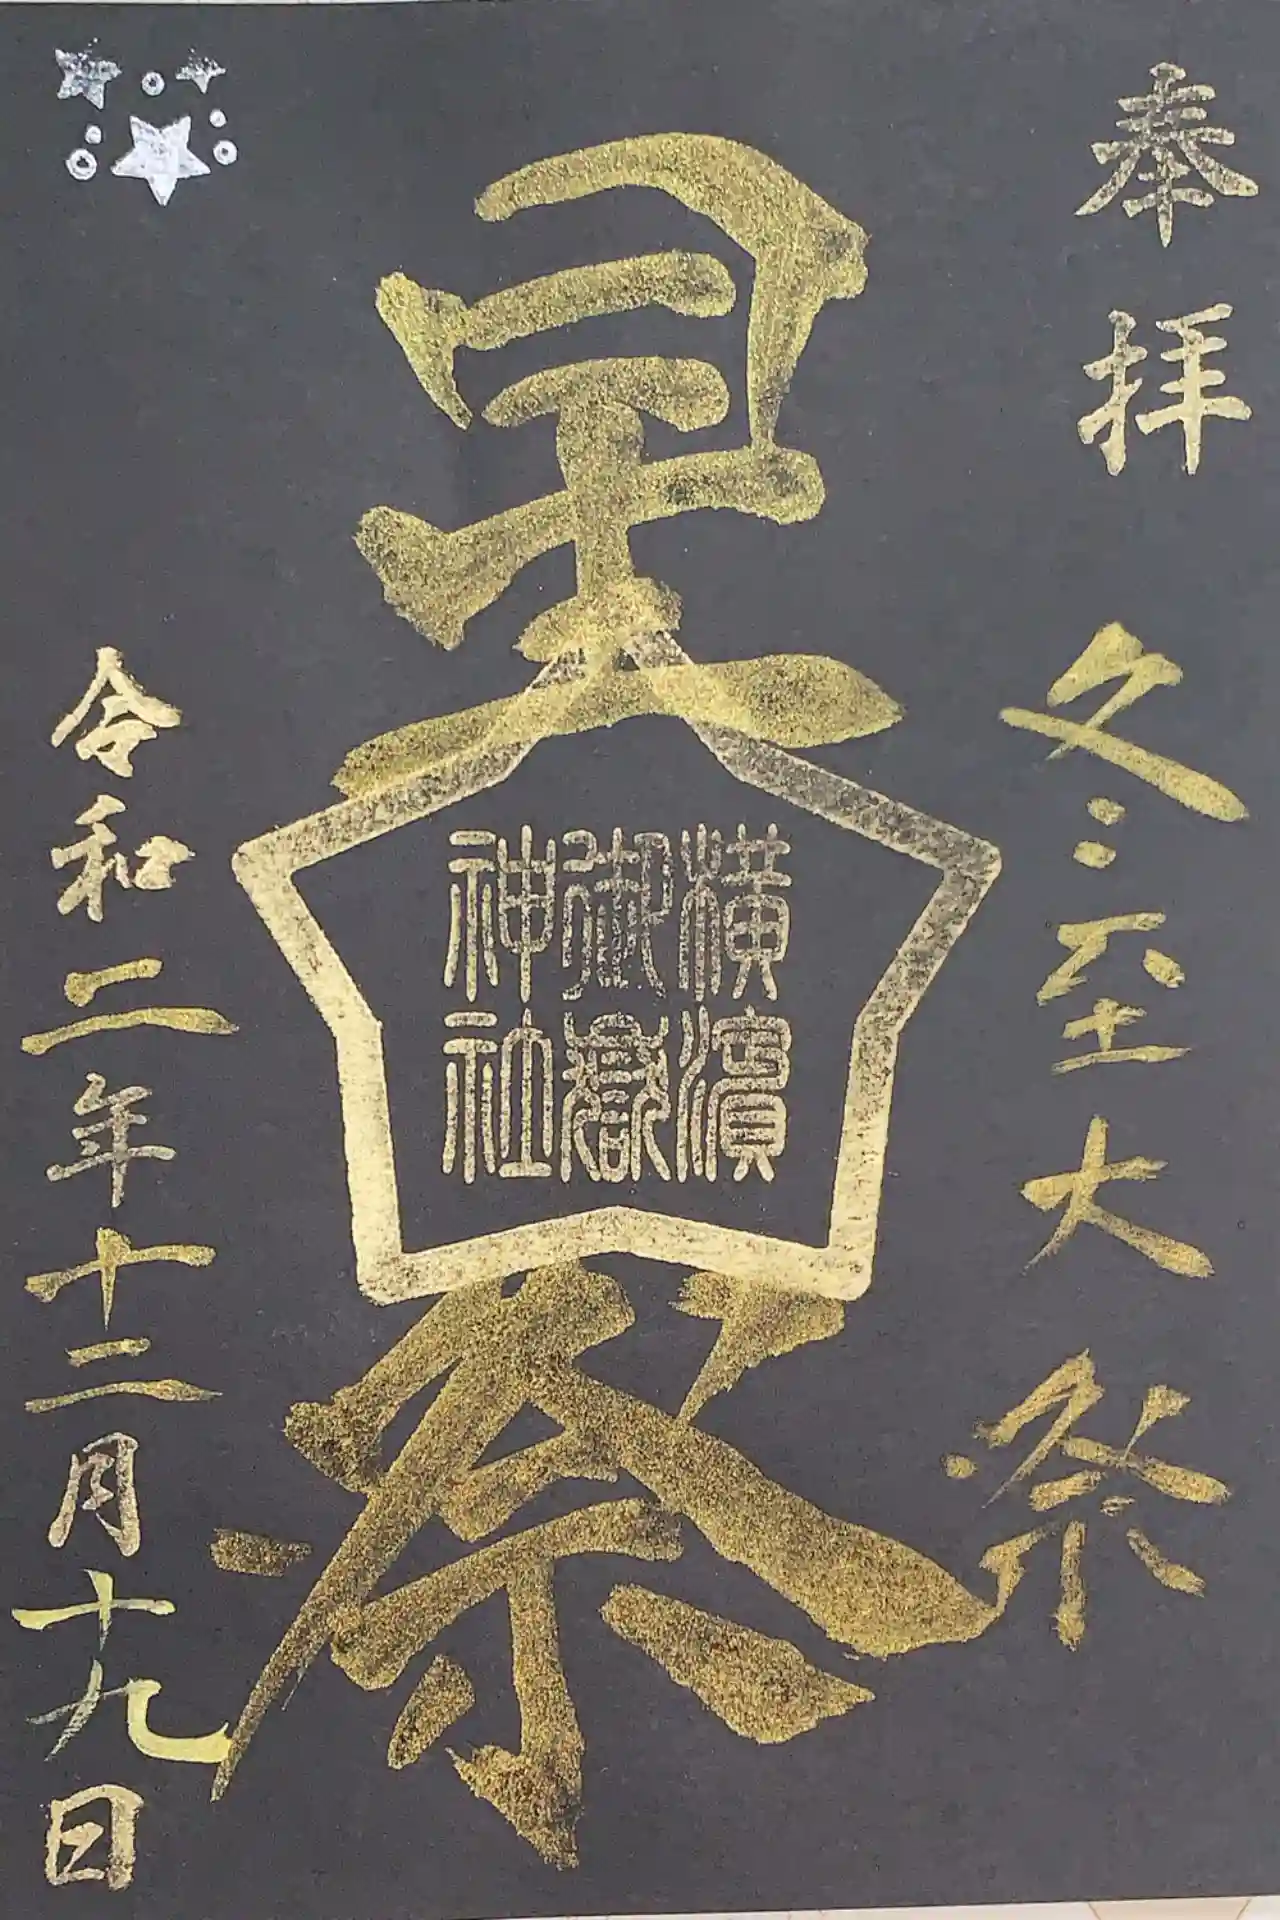 奉拝
冬至大祭
星祭
横濱
御嶽
神社
令和二年十二月十九日